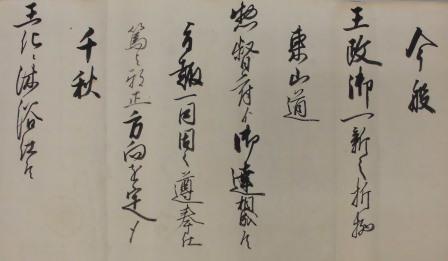 今般
王政御一新之折柄
東山道
惣督府ゟ御達相成候
方報一同固く遵奉仕
篤と邪正方向を定メ
千秋
王化ニ沐浴仕候